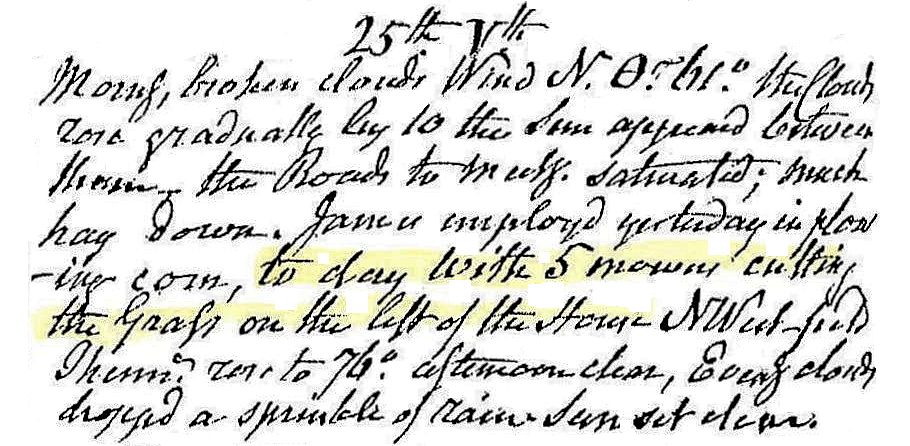 25th Vth
Morng, broken clouds Wind N. Or 61.° the Clouds
rose gradually by 10 the Sun appeard between
them – the Roads to Meetg. saturated; much
hay down. James employd yesterday in plow
-ing corn, to day with 5 mowers cutting
the Grass on the left of the House NWest field
Thermr. rose to 76.° afternoon clear, Eveng clouds
dropped a sprinkle of rain Sun set clear.